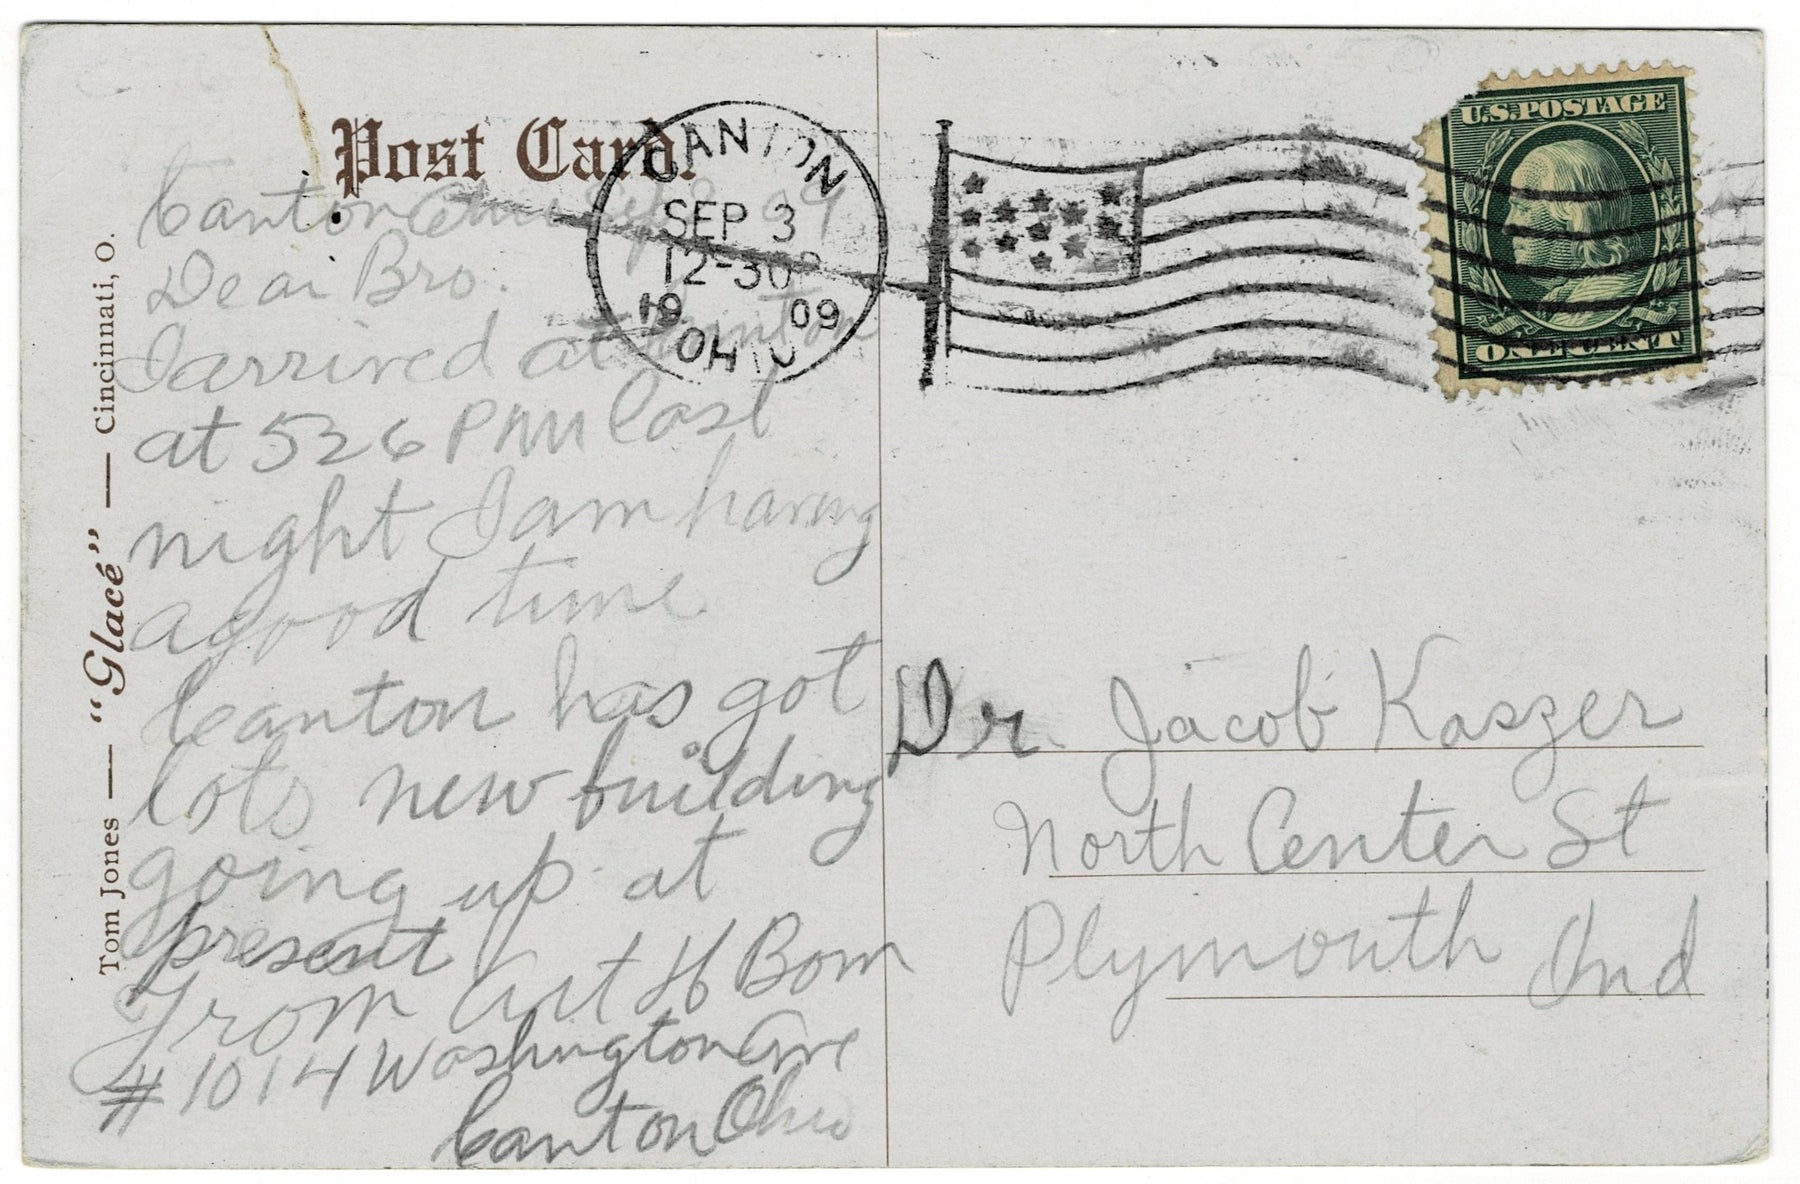 Post Card.
CANTON
SEP 3
12-30P
19 09
OHIO
U.S. POSTAGE
ONE CENT
Tom Jones — "Glacé" — Cincinnati, O.
Canton Ohio Sep 3 09
Dear Bro.
I arrived at Canton
at 526 PM last
night I am having
a good time
Canton has got
lots new building
going up at
present
From Art H Bom
# 1014 Washington Ave
Canton Ohio
Dr. Jacob Kaszer
North Center St
Plymouth Ind